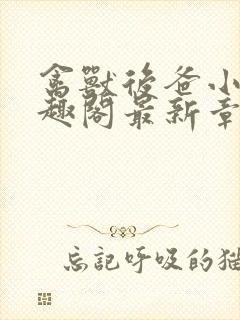 禽獸後爸小
趣閣最新章
忘記呼吸的猫